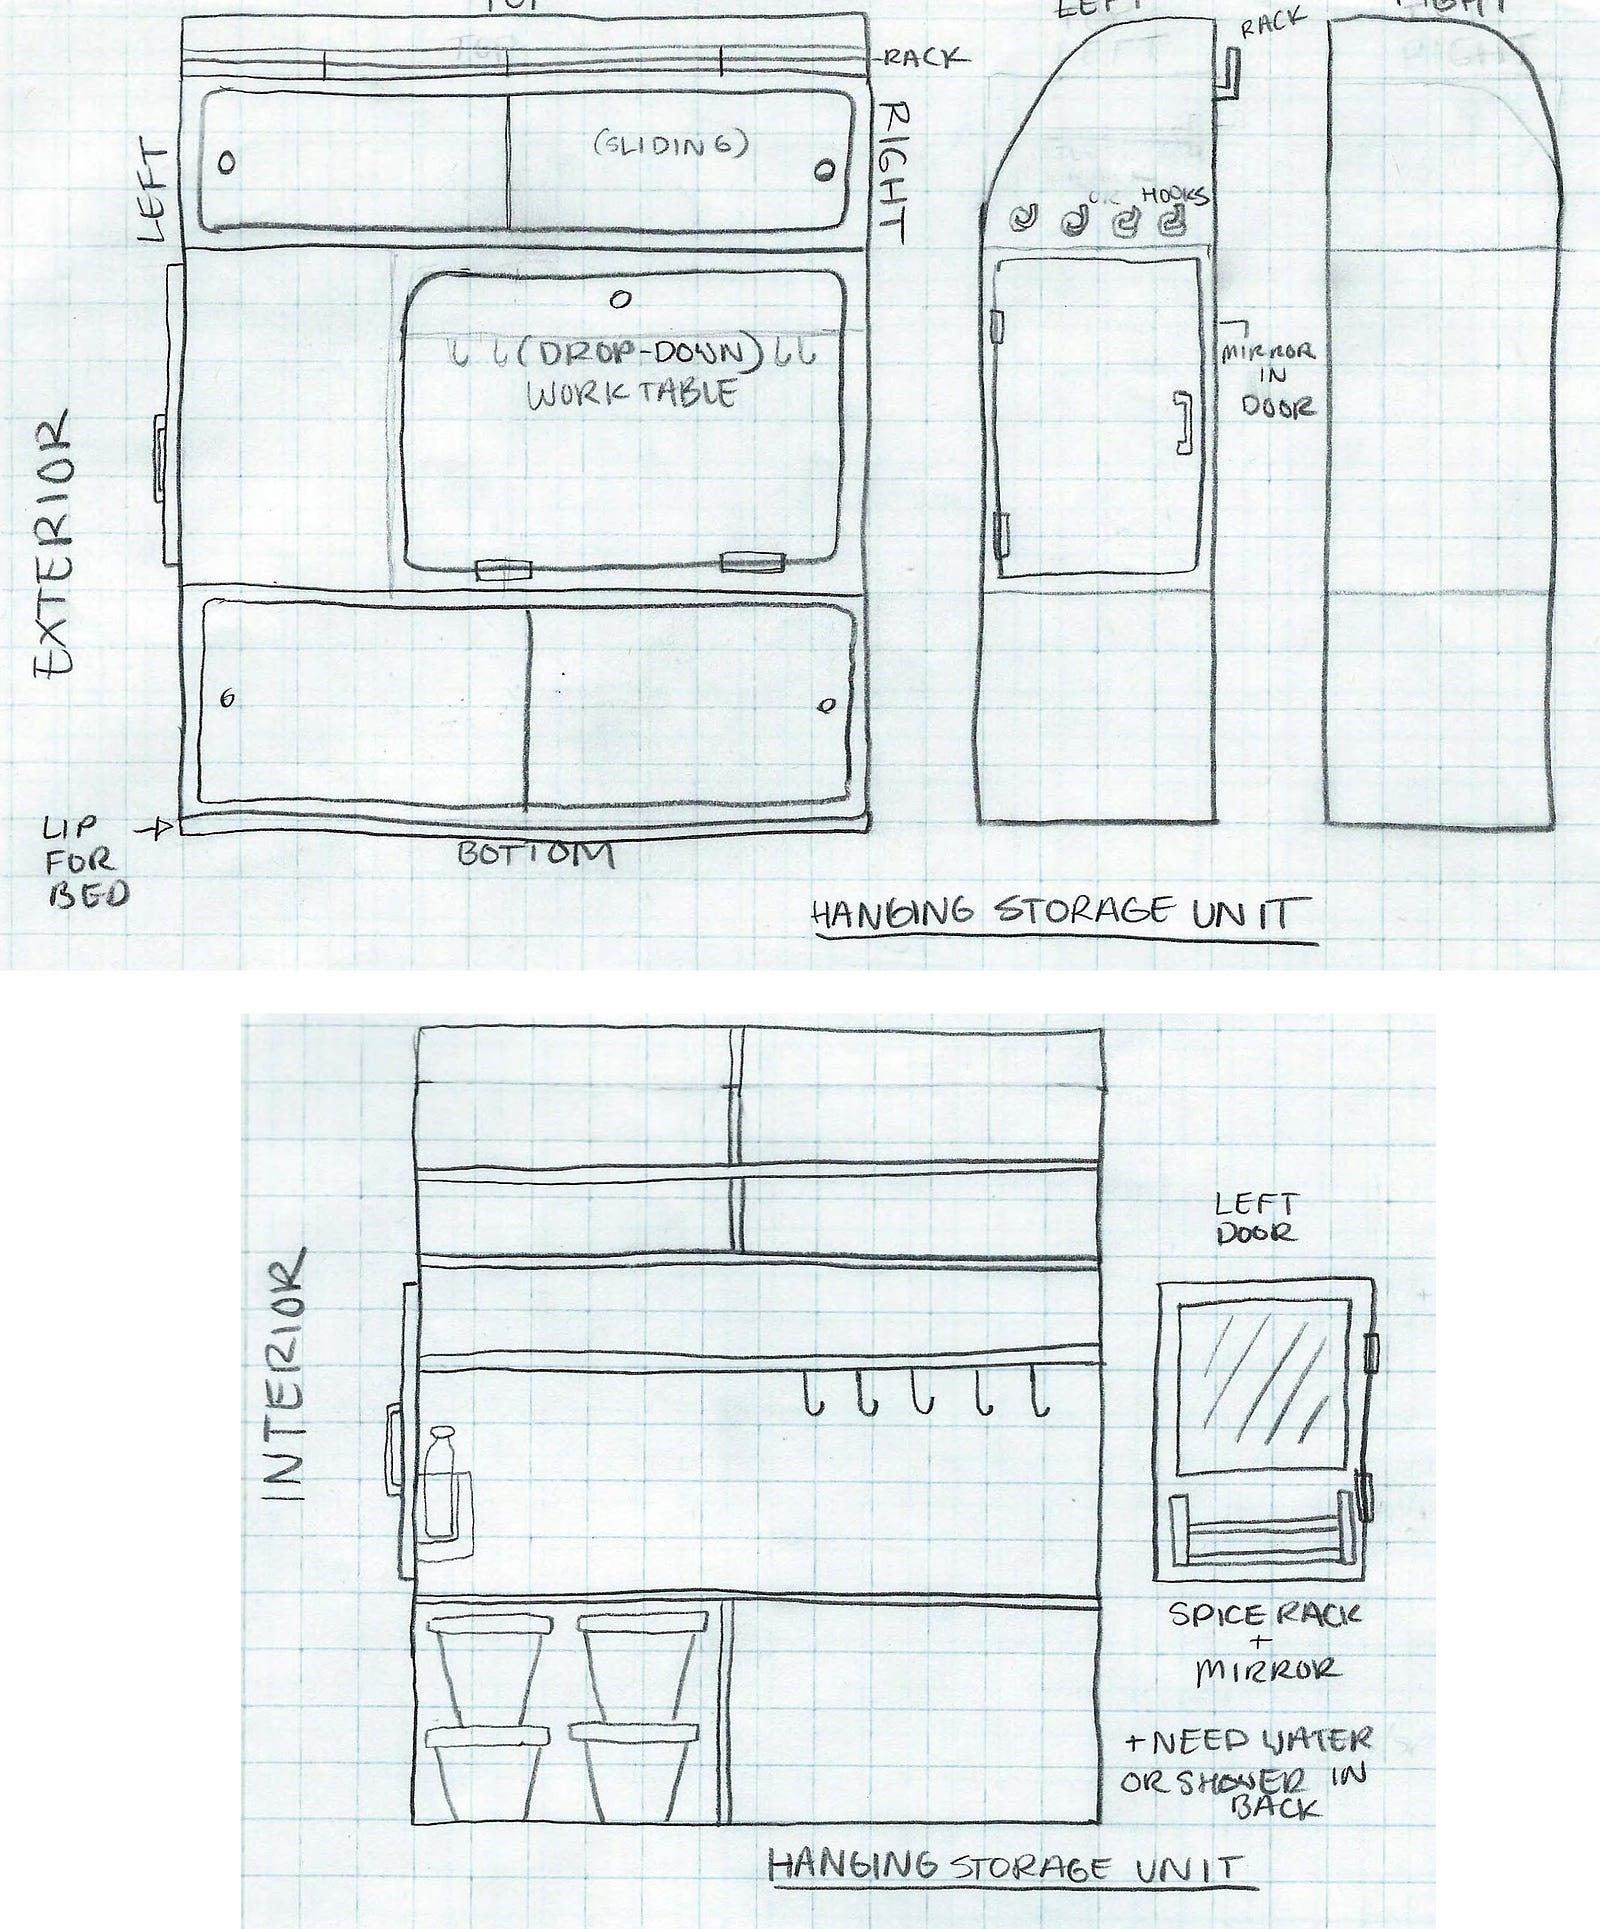 TOP
RACK
LEFT
RIGHT
(SLIDING)
(DROP-DOWN)
WORK TABLE
EXTERIOR
LIP
FOR
BED
BOTTOM
LEFT
RACK
HOOKS
MIRROR
IN
DOOR
RIGHT
HANGING STORAGE UNIT
INTERIOR
LEFT
DOOR
SPICE RACK
+
MIRROR
+ NEED WATER
OR SHOWER IN
BACK
HANGING STORAGE UNIT